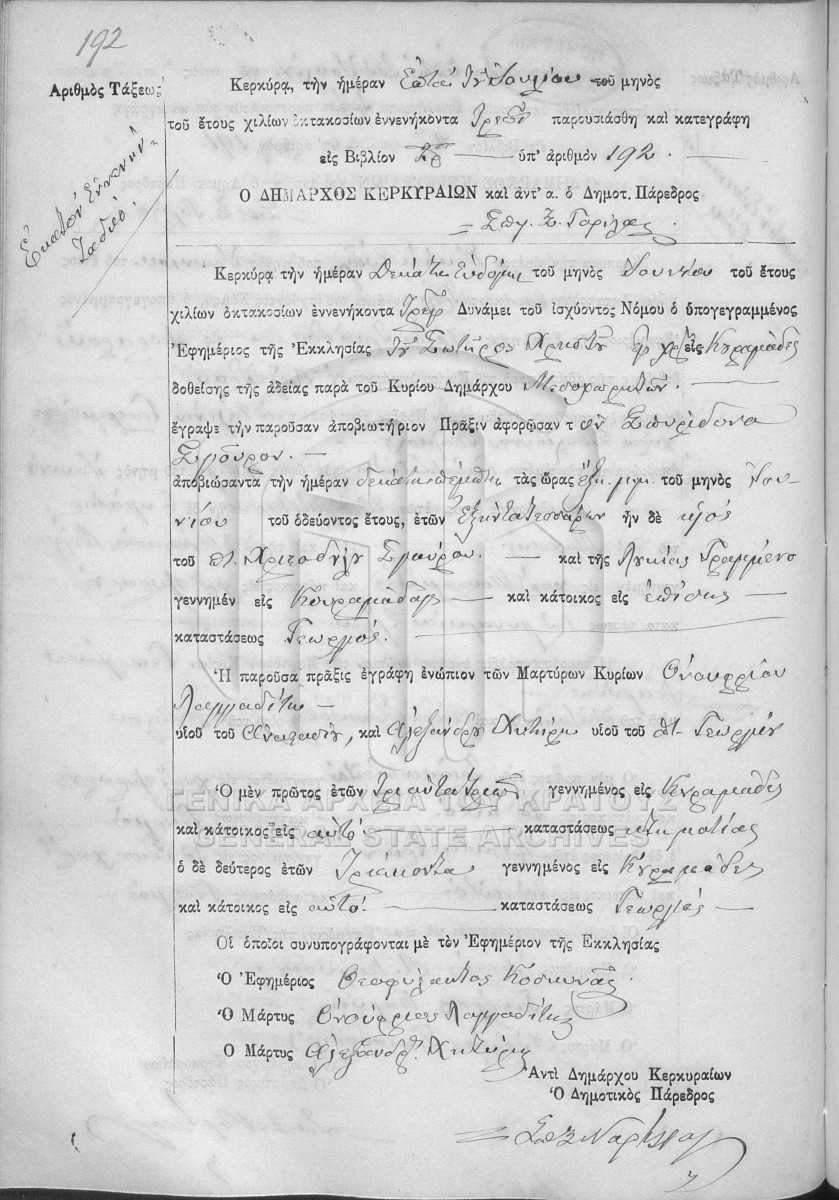 192
Ἀριθμὸς Τάξεως
Ἑκατὸν Ἐννενῆν-
τα δύο.
Κερκύρα, τὴν ἡμέραν Ἑπτὰ Ἰουλίου τοῦ μηνὸς
τοῦ ἔτους χιλίων ὀκτακοσίων ἐννενήκοντα τριῶν παρουσιάσθη καὶ κατεγράφη
εἰς Βιβλίον ὑπ' ἀριθμὸν 192.
Ο ΔΗΜΑΡΧΟΣ ΚΕΡΚΥΡΑΙΩΝ καὶ ἀντ' α. ὁ Δημοτ. Πάρεδρος
Κερκύρα τὴν ἡμέραν Δεκάτη Ἑβδόμη τοῦ μηνὸς Ἰουνίου τοῦ ἔτους
χιλίων ὀκτακοσίων ἐννενήκοντα τριῶν Δυνάμει τοῦ ἰσχύοντος Νόμου ὁ ὑπογεγραμμένος
Ἐφημέριος τῆς Ἐκκλησίας τοῦ Σωτῆρος Χριστοῦ εἰς Κυραμάδες
δοθείσης τῆς ἀδείας παρὰ τοῦ Κυρίου Δημάρχου Μεσοχωριτῶν.
ἔγραψε τὴν παροῦσαν ἀποβιωτήριον Πρᾶξιν ἀφορῶσαν τὸν Σπυρίδωνα
Σγοῦρον.
ἀποβιώσαντα τὴν ἡμέραν δεκάτη πέμπτη τὰς ὥρας ἓξ μ.μ. τοῦ μηνὸς Ἰου-
νίου τοῦ ὁδεύοντος ἔτους, ἐτῶν ἑξήντα τεσσάρων ἦν δὲ υἱὸς
τοῦ π. Χριστοδούλου Σγούρου. καὶ τῆς Λουκίας Γραμμένο
γεννημέν εἰς Κουραμάδες καὶ κάτοικος εἰς ἐπίσης
καταστάσεως Γεωργός.
Ἡ παροῦσα πρᾶξις ἐγράφη ἐνώπιον τῶν Μαρτύρων Κυρίων Ὀνουφρίου
Λαγγαδίτη
υἱοῦ τοῦ Ἀναστασίου, καὶ Ἀλεξάνδρου Χυτήρη υἱοῦ τοῦ π. Γεωργίου
Ὁ μὲν πρῶτος ἐτῶν τριάντα τριῶν γεννημένος εἰς Κουραμάδες
καὶ κάτοικος εἰς αὐτό. καταστάσεως κτηματίας
ὁ δὲ δεύτερος ἐτῶν τριάκοντα γεννημένος εἰς Κυραμάδες
καὶ κάτοικος εἰς αὐτό. καταστάσεως Γεωργός
Οἱ ὁποῖοι συνυπογράφονται μὲ τὸν Ἐφημέριον τῆς Ἐκκλησίας
Ὁ Ἐφημέριος Θεοφύλακτος Κοσκινᾶς.
Ὁ Μάρτυς Ὀνούφριος Λαγγαδίτης
Ὁ Μάρτυς Ἀλέξανδρ. Χυτήρης
Ἀντὶ Δημάρχου Κερκυραίων
Ὁ Δημοτικὸς Πάρεδρος
ΓΕΝΙΚΑ ΑΡΧΕΙΑ ΤΟΥ ΚΡΑΤΟΥΣ
GENERAL STATE ARCHIVES